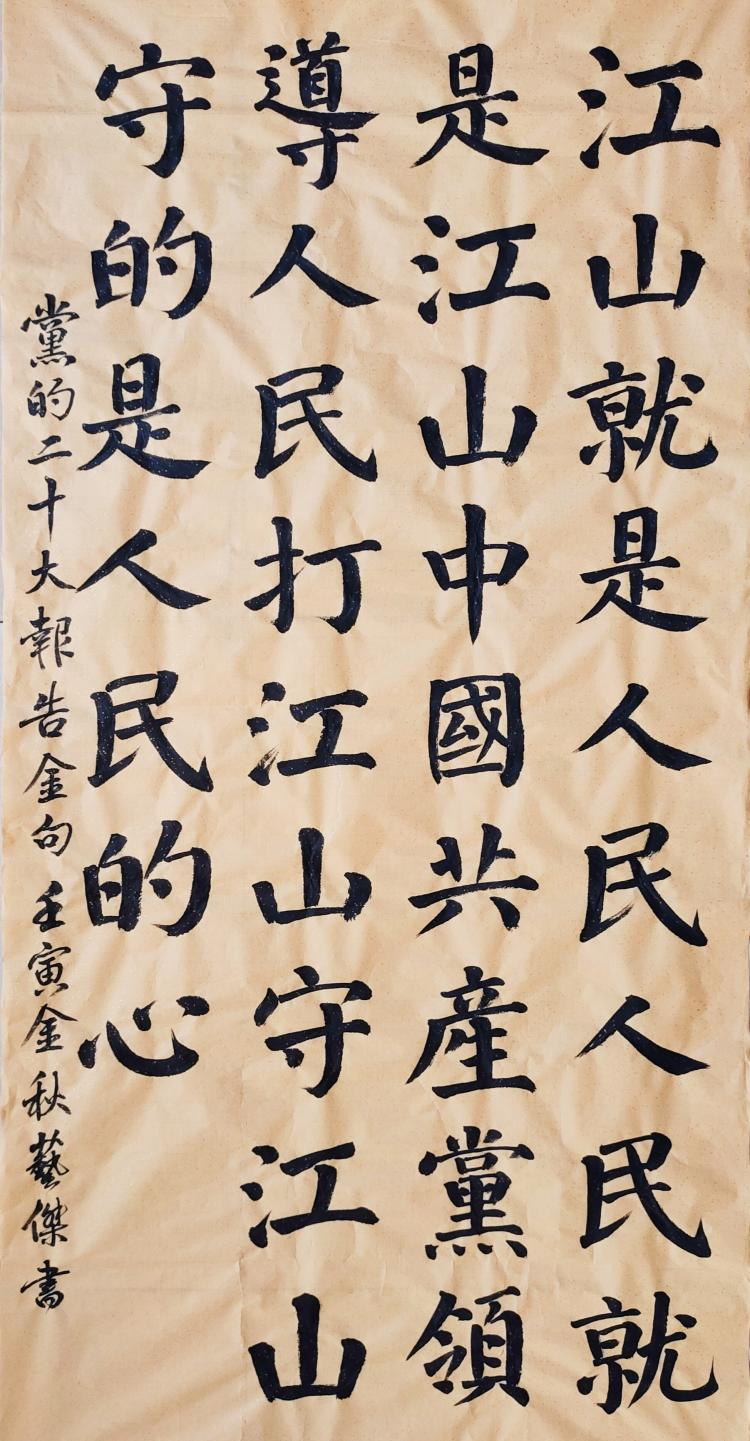 江山就是人民人民就
是江山中國共產黨領
導人民打江山守江山
守的是人民的心
黨的二十大報告金句 壬寅金秋藝傑書